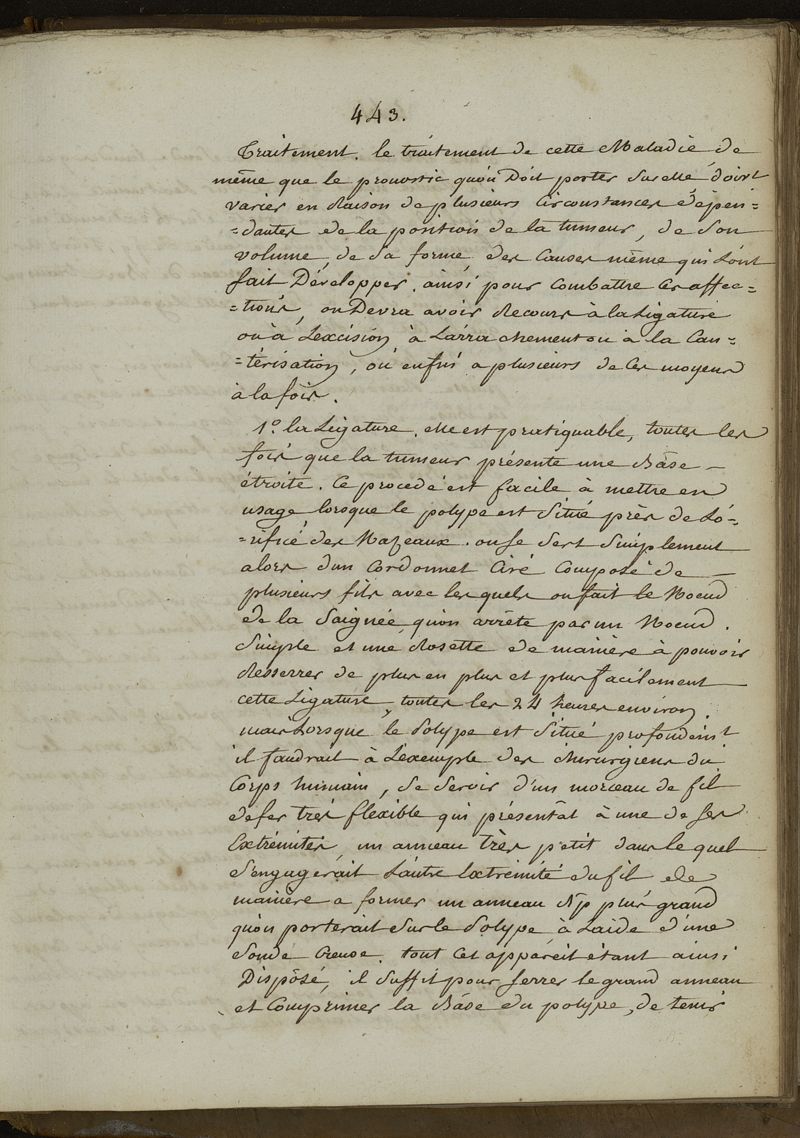 443.
Traitement. le traitement de cette Maladie de
même que le pronostic qu'on Doit porter sur elle, doivt
varier en Raison de plusieurs Circonstances dépen=
=dantes de la position de la tumeur, de Son
volume, de Sa forme, des Causes même qui L'ont
fait Développer. ainsi pour Combattre Ces affec=
=tions, on Devra avoir Recours à la Ligature
ou à L'excision, à L'arrachement ou à la Cau=
=térisation, ou enfin a plusieurs de Ces moyens
à la fois.
1.° la Ligature. elle est pratiquable, toutes les
fois que la tumeur présente une Base —
étroite. Ce procedé est facile à mettre en
usage lorsque le polype est Situé près de L'o=
=rifice des Nazeaux. on Se Sert Simplement
alors d'un Cordonnet Ciré Composé de —
plusieurs fils avec les quels on fait le Noeud
de la Saignée qu'on arrête par un Noeud.
Simple et une Rosette de manière à pouvoir
Resserrer de plus en plus et plus facilement
cette Ligature, toutes les 24 heures environ.
mais Lorsque le Polype est Situé profondémt
il faudrait à L'exemple des chirurgiens du
Corps humain, Se Servir d'un morceau de fil
de fer très flexible qui présentât à une de Ses
Extrémités, un anneau très petit dans le quel
S'engagerait L'autre Extrémité du fil de
manière a former un anneau plus grand
qu'on porterait Sur le Polype, à L'aide d'une
Sonde Creuse. tout Cet appareil étant ainsi
Disposé, il Suffit pour Serrer le grand anneau
et Comprimer la Base du polype, de tenir